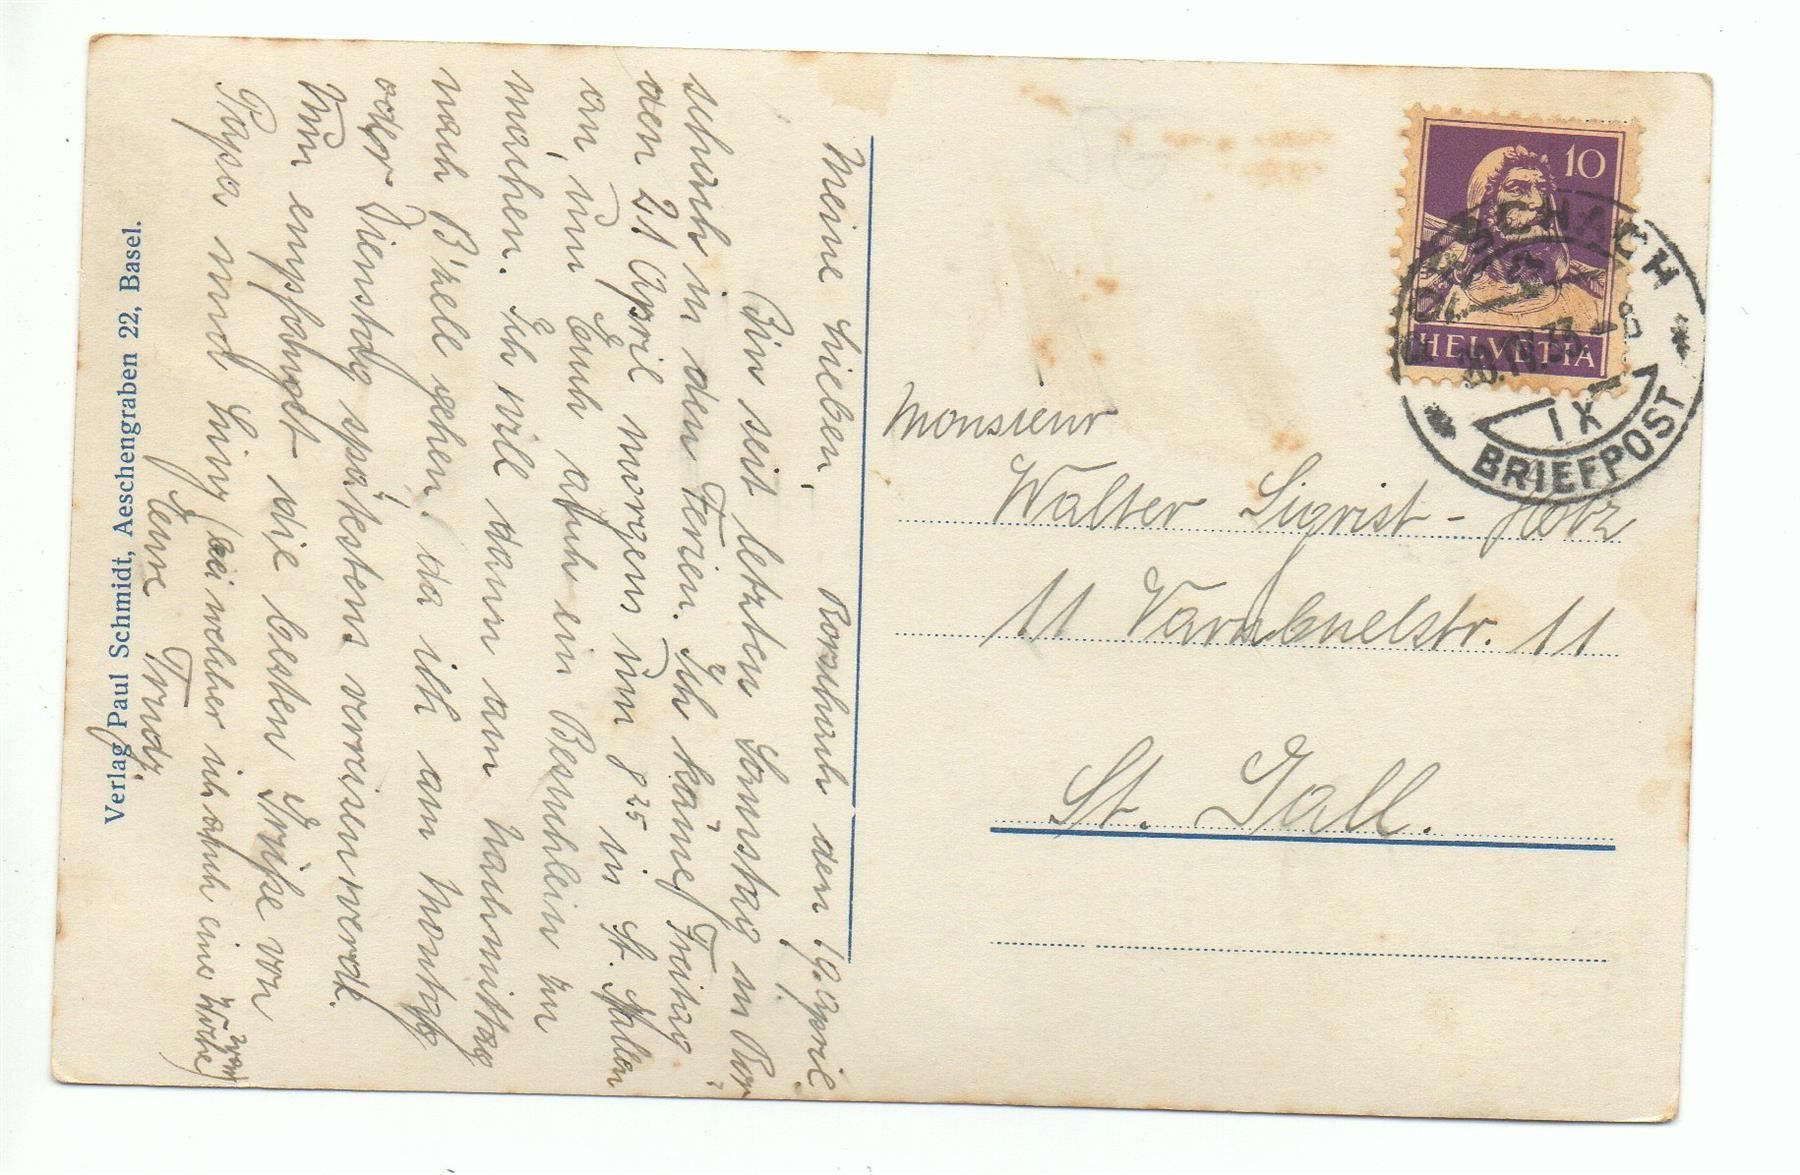 Meine Lieben, Rorschach den 19. April.
Bin seit letzten Samstag in Ror-
schach in den Ferien. Ich käme Freitag
den 21 April morgens um 8 25 in St. Gallen
an, um Euch auch ein Besuchlein zu
machen. Ich will dann am Nachmittag
nach B'zell gehen, da ich am Montag
oder Dienstag spätestens verreisen werde.
Nun empfanget die besten Grüße von
Papa und Liny (bei welcher ich auch eine Woche war)
Eure Trudy.
Verlag Paul Schmidt, Aeschengraben 22, Basel.
10
HELVETIA
RORSCHACH
20.IV.33.-8
IX
BRIEFPOST
Monsieur
Walter Sigrist - Hotz
11 Varnbuelstr. 11
St. Gall.